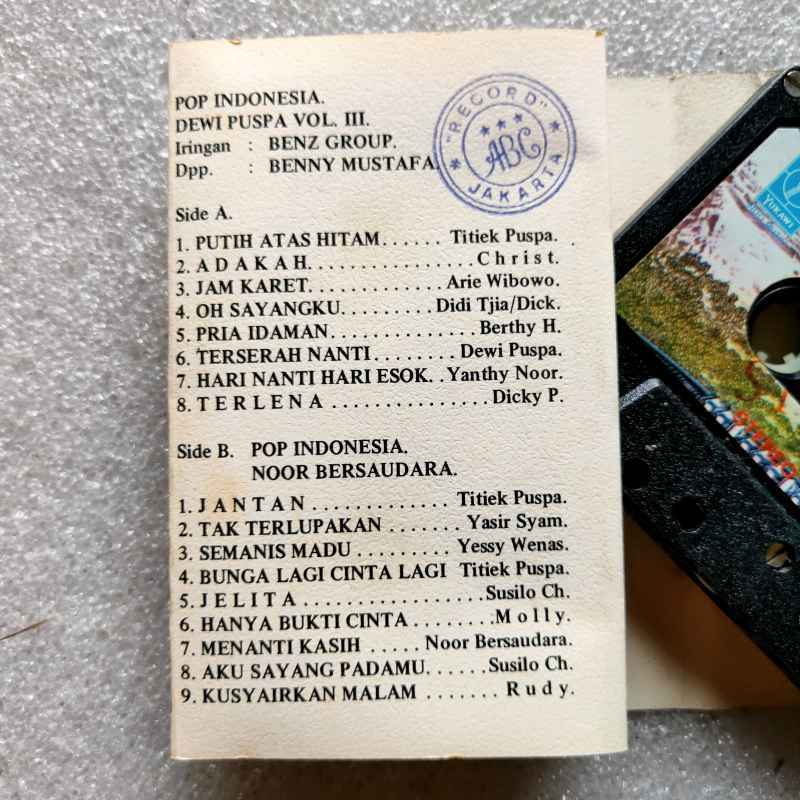 POP INDONESIA.
DEWI PUSPA VOL. III.
Iringan : BENZ GROUP.
Dpp. : BENNY MUSTAFA.
"RECORD"
ABC
JAKARTA
Side A.
1. PUTIH ATAS HITAM...... Titiek Puspa.
2. A D A K A H................ C h r i s t.
3. JAM KARET............. Arie Wibowo.
4. OH SAYANGKU......... Didi Tjia/Dick.
5. PRIA IDAMAN.............. Berthy H.
6. TERSERAH NANTI........ Dewi Puspa.
7. HARI NANTI HARI ESOK.. Yanthy Noor.
8. T E R L E N A ............... Dicky P.
Side B. POP INDONESIA.
NOOR BERSAUDARA.
1. J A N T A N ............. Titiek Puspa.
2. TAK TERLUPAKAN ....... Yasir Syam.
3. SEMANIS MADU ......... Yessy Wenas.
4. BUNGA LAGI CINTA LAGI Titiek Puspa.
5. J E L I T A ................. Susilo Ch.
6. HANYA BUKTI CINTA ........ M o l l y.
7. MENANTI KASIH ..... Noor Bersaudara.
8. AKU SAYANG PADAMU...... Susilo Ch.
9. KUSYAIRKAN MALAM ....... R u d y.
YUKAWI
STEREO